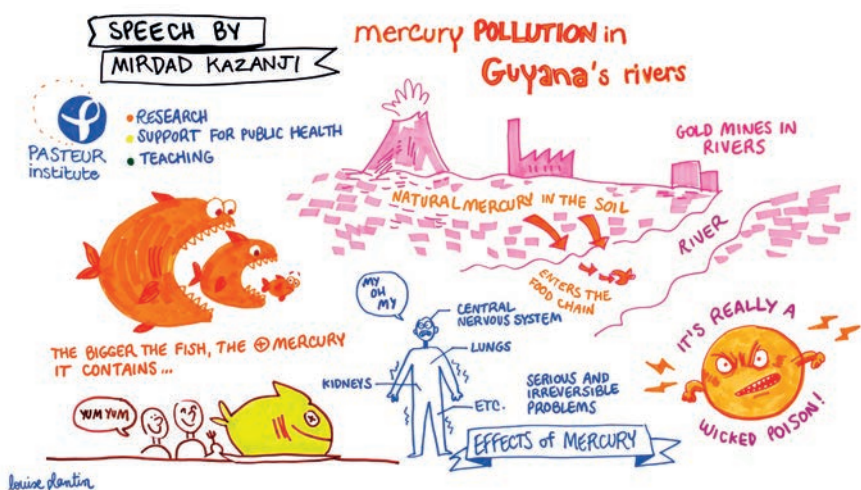 SPEECH BY
MIRDAD KAZANJI
mercury POLLUTION in
Guyana's rivers
PASTEUR
institute
• RESEARCH
• SUPPORT FOR PUBLIC HEALTH
• TEACHING
GOLD MINES IN
RIVERS
NATURAL MERCURY IN THE SOIL
RIVER
ENTERS THE
FOOD CHAIN
THE BIGGER THE FISH, THE ⊕ MERCURY
IT CONTAINS...
YUM YUM
MY
OH
MY
CENTRAL
NERVOUS SYSTEM
LUNGS
KIDNEYS
ETC.
SERIOUS AND
IRREVERSIBLE
PROBLEMS
EFFECTS of MERCURY
IT'S REALLY A
WICKED POISON!
louise plantin